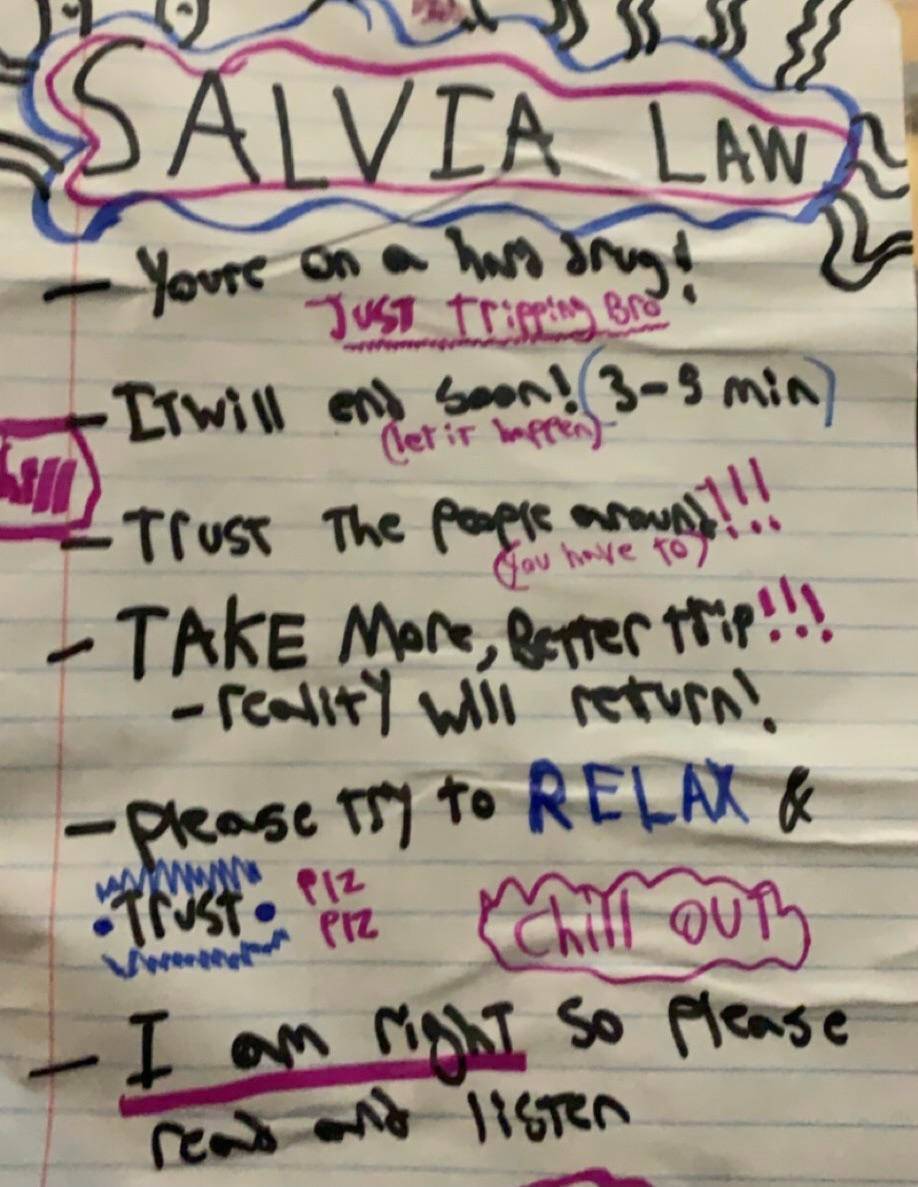 SALVIA LAW
- Youre on a hard drug!
Just Tripping Bro
- ITwill end soon! (3-9 min)
(let it happen)
- Trust The people around!!!
(You have to)
- TAKE More, Better trip!!!
- reality will return!
- please try to RELAX &
• Trust • Plz
Plz
Chill OUT
- I am right so please
read and listen